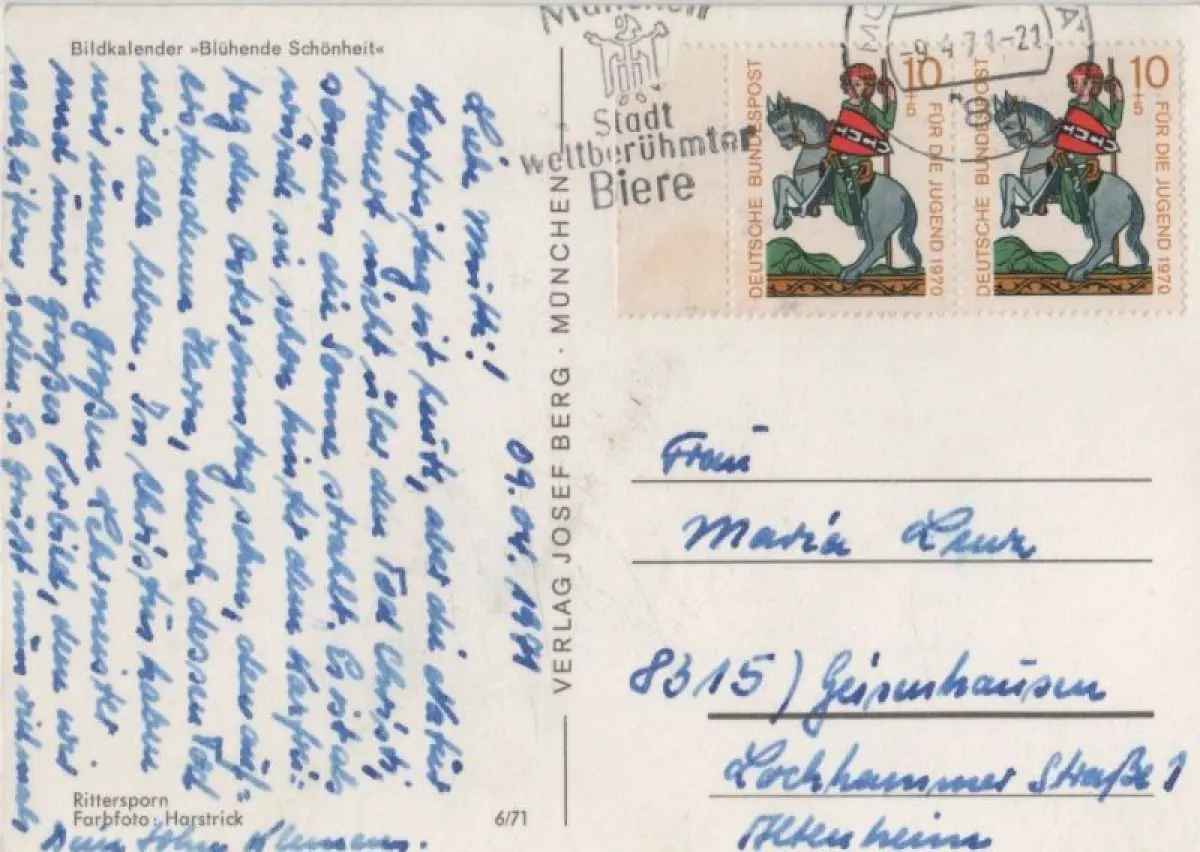 Bildkalender »Blühende Schönheit«
09. 04. 1971
Liebe Mutti!
Karfreitag ist heute, aber die Natur
trauert nicht über den Tod Christi,
sondern die Sonne strahlt. Es ist als
würde sie schon hinter dem Karfrei=
tag den Ostersonntag sehen, den auf=
erstandenen Herrn, durch dessen Tod
wir alle leben. In Christus haben
wir unseren großen Lehrmeister
und unser großes Vorbild, dem wir
nacheifern sollen. Es grüßt vielmals
Dein Sohn Klemens.
Rittersporn
Farbfoto: Harstrick
6/71
VERLAG JOSEF BERG · MÜNCHEN
München
Stadt
weltberühmter
Biere
-9.4.71-21
DEUTSCHE BUNDESPOST
10
+5
FÜR DIE JUGEND 1970
DEUTSCHE BUNDESPOST
10
+5
FÜR DIE JUGEND 1970
Frau
Maria Lenz
8315) Geisenhausen
Lochhammer Straße 1
Altenheim